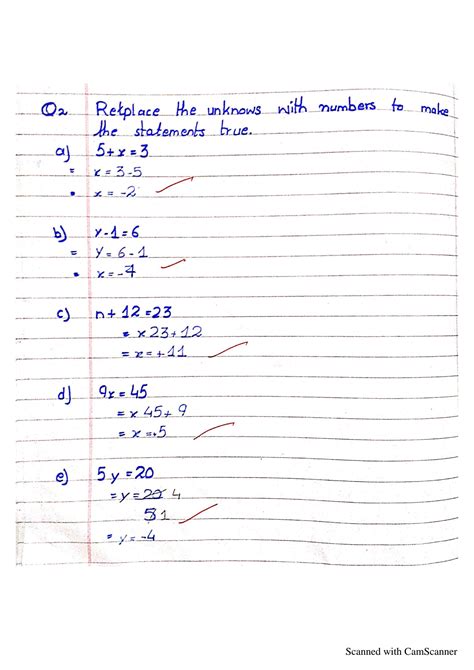 Q2 Replace the unknows with numbers to make
the statements true.
a) 5+x=3
= x=3-5
• x=-2
b) y-1=6
= y=6-1
• x=-7
c) n+12=23
= x23+12
= x=+11
d) 9x=45
= x 45+9
= x=.5
e) 5y=20
=y=20 4
51
= y=-4
Scanned with CamScanner